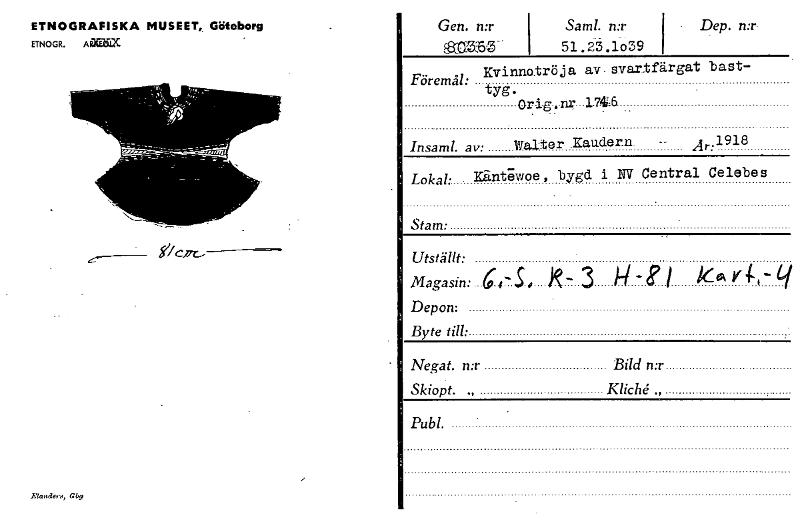 ETNOGRAFISKA MUSEET, Göteborg
ETNOGR.
81 cm
Elanders, Gbg
Gen. n:r Saml. n:r Dep. n:r
80363 51.23.1o39
Föremål: Kvinnotröja av svartfärgat bast-
tyg.
Orig.nr
Insaml. av: Walter Kaudern År: 1918
Lokal: Kantewoe, bygd i NV Central Celebes
Stam:
Utställt:
Magasin: G.-S. R-3 H-81 Kart.-4
Depon:
Byte till:
Negat. n:r Bild n:r
Skiopt. „ Kliché „
Publ.